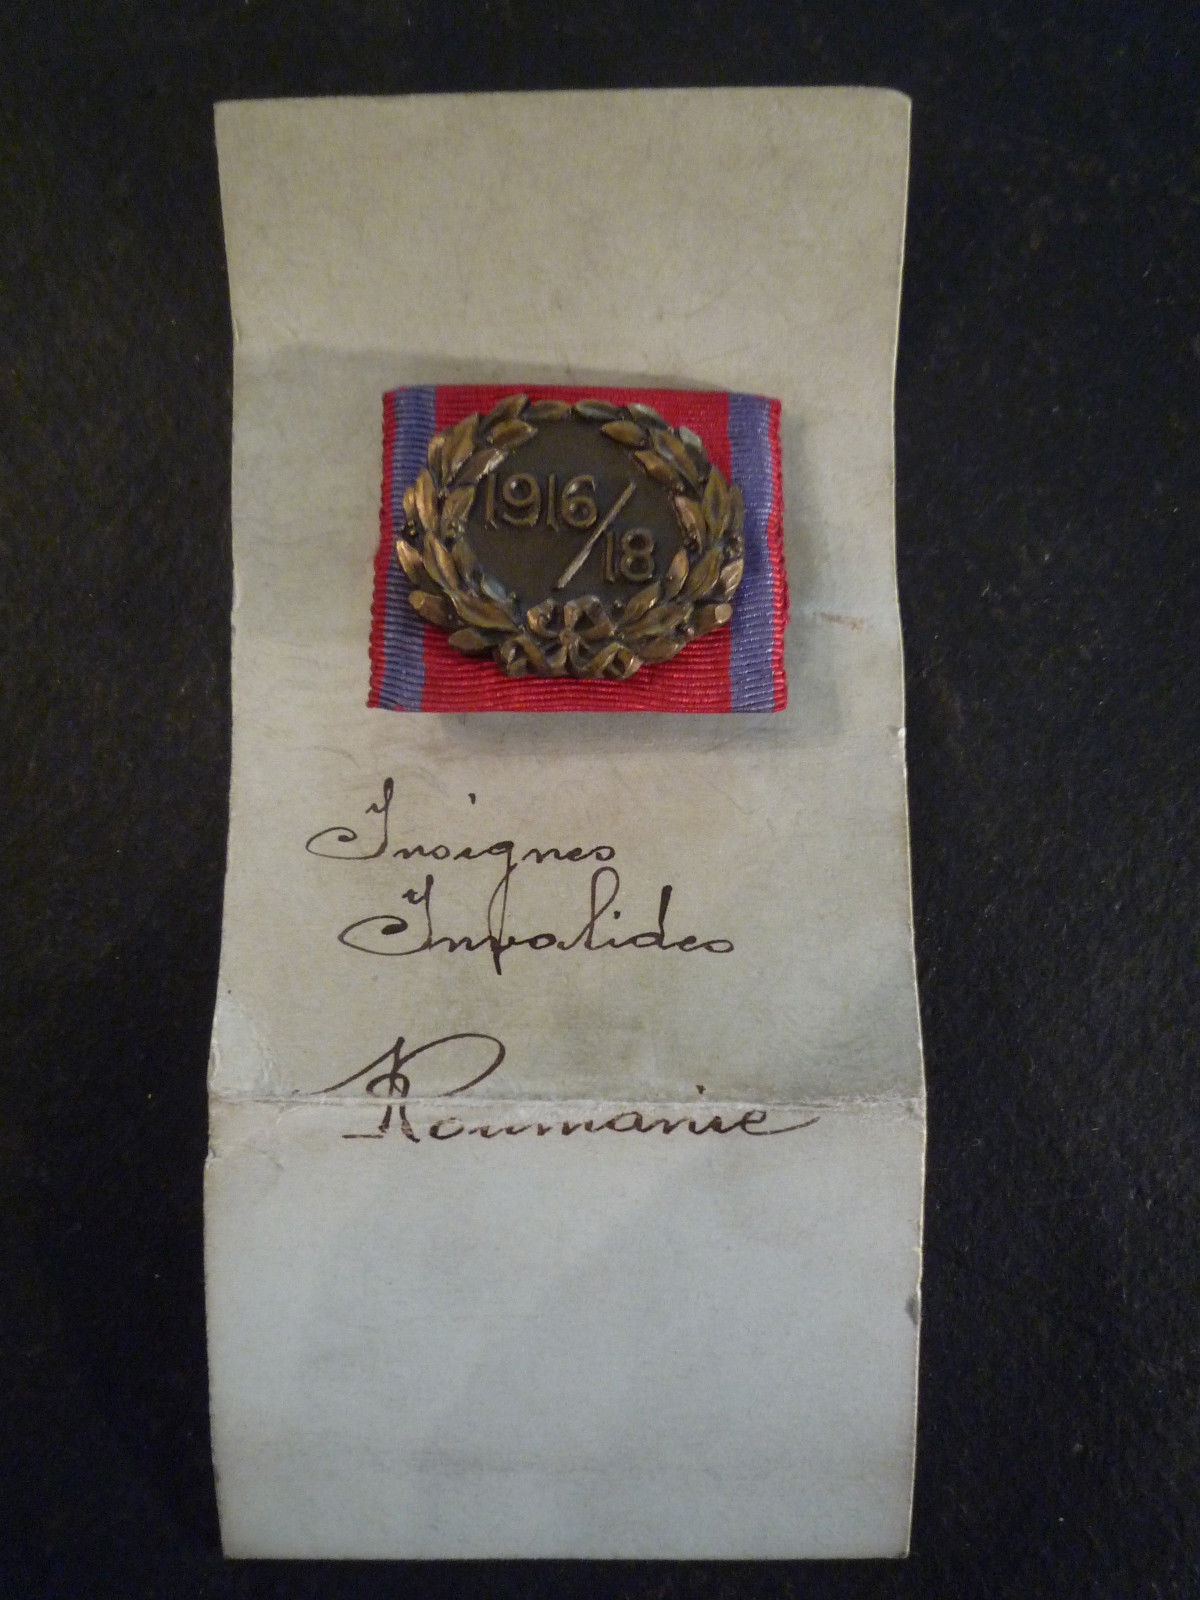 1916/18
Insignes
Invalides
Roumanie